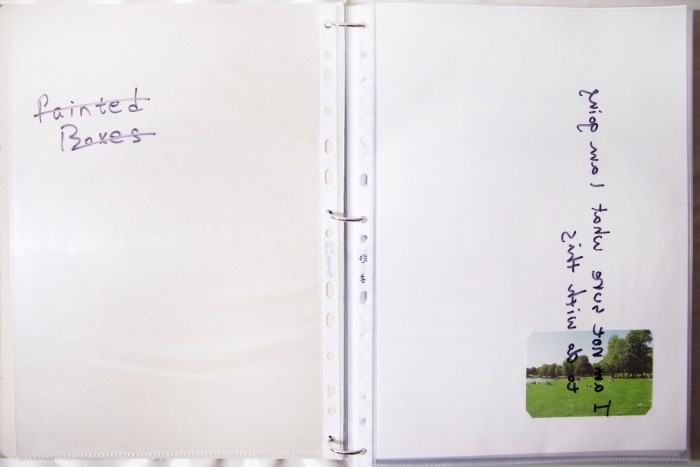 Painted
Boxes
I am Not sure what I am going
to do with this